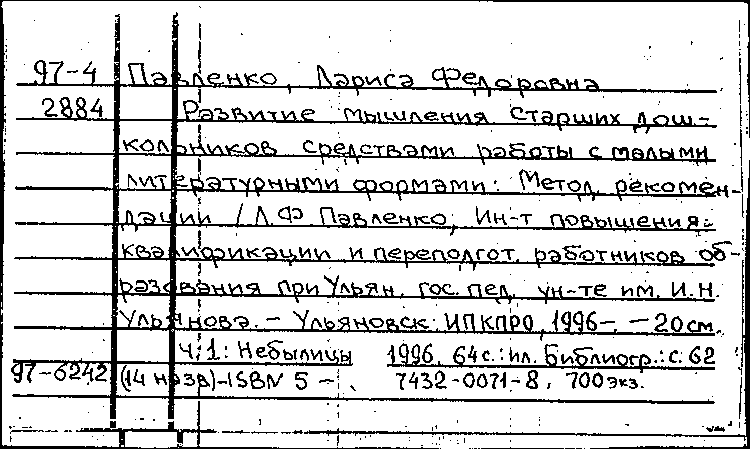 97-4 Павленко, Лариса Федоровна
2884 Развитие мышления старших дош-
кольников средствами работы с малыми
литературными формами: Метод. рекомен-
дации / Л.Ф. Павленко; Ин-т повышения
квалификации и переподгот. работников об-
разования при Ульян. гос. пед. ун-те им. И.Н.
Ульянова. - Ульяновск: ИПКПРО, 1996-. - 20 см.
Ч. 1: Небылицы 1996. 64 с.: ил. Библиогр.: с. 62
97-6242 (14 назв.) - ISBN 5 - 7432-0071-8. 700 экз.